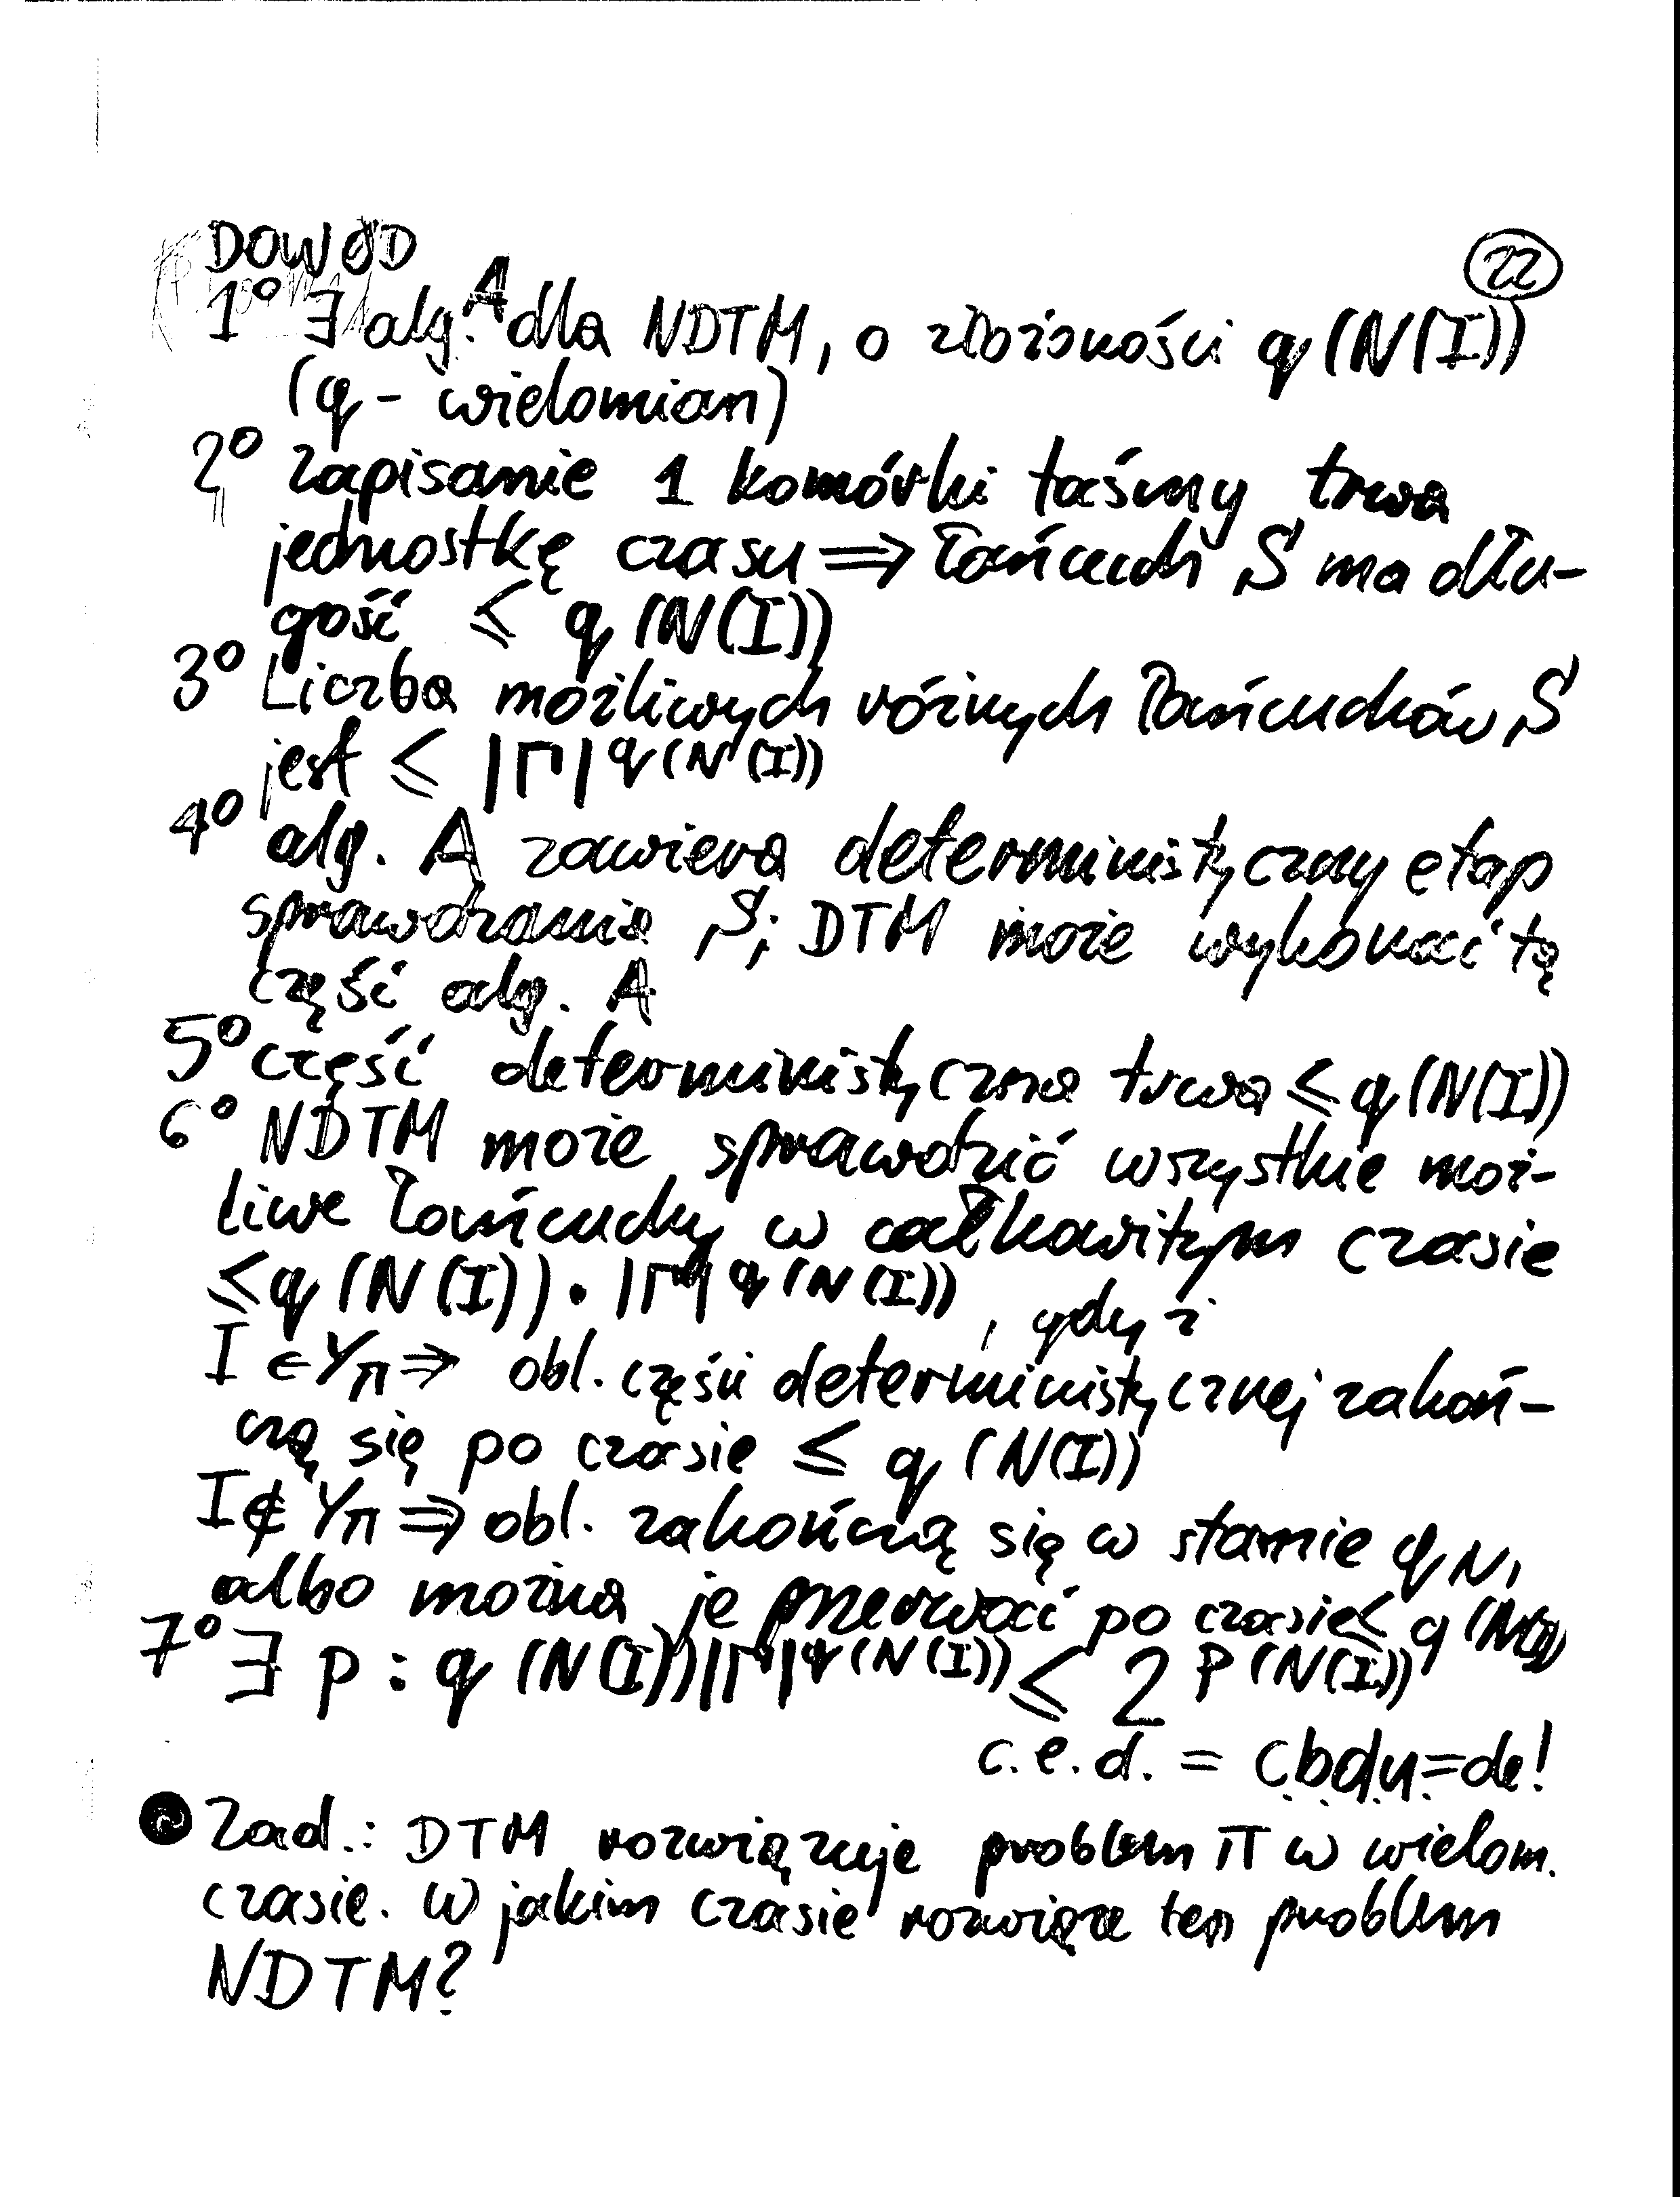 DOWÓD
22
1° ∃ alg. A dla NDTM, o złożoności q(N(I))
(q - wielomian)
2° zapisanie 1 komórki taśmy trwa
jednostkę czasu ⇒ łańcuch S ma dłu-
gość ≤ q(N(I))
3° Liczba możliwych różnych łańcuchów S
jest ≤ |Γ|^q(N(I))
4° alg. A zawiera deterministyczny etap
sprawdzania S; DTM może wykonać tą
część alg. A
5° część deterministyczna trwa ≤ q(N(I))
6° NDTM może sprawdzić wszystkie moż-
liwe łańcuchy w całkowitym czasie
≤ q(N(I)) · |Γ|^q(N(I)), gdyż
I ∈ Yπ ⇒ obl. części deterministycznej zakoń-
czą się po czasie ≤ q(N(I))
I ∉ Yπ ⇒ obl. zakończą się w stanie qN,
albo można je przerwać po czasie ≤ q(N(I))
7° ∃ p : q(N(I))|Γ|^q(N(I)) ≤ 2^p(N(I))
c.e.d. = cbdu = de!
Zad.: DTM rozwiązuje problem π w wielom.
czasie. W jakim czasie rozwiąże ten problem
NDTM?